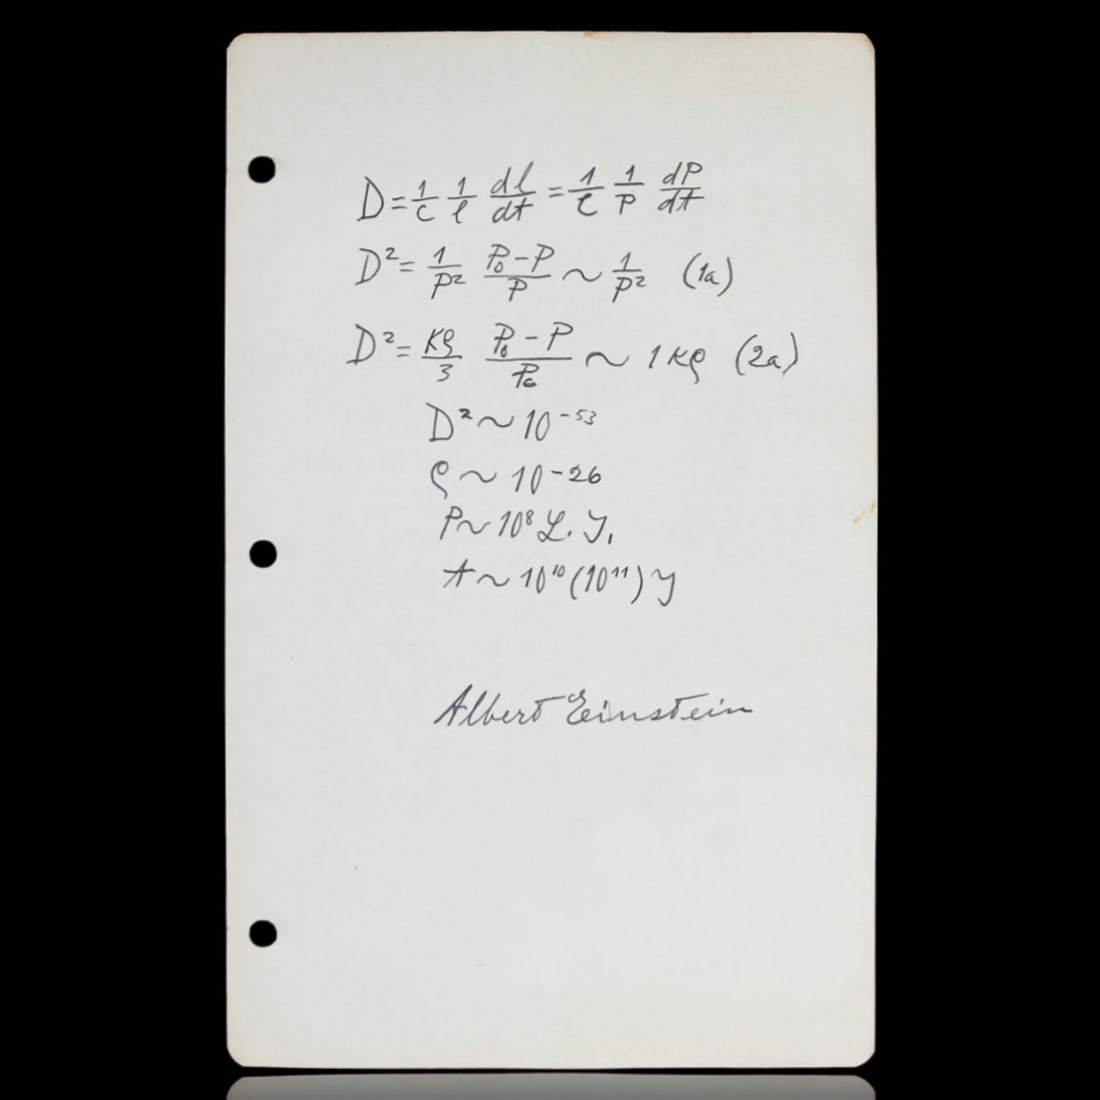 D = 1/c 1/l dl/dt = 1/c 1/P dP/dt
D² = 1/P² P₀-P/P ~ 1/P² (1a)
D² = κϱ/3 P₀-P/P₀ ~ 1κϱ (2a)
D² ~ 10⁻⁵³
ϱ ~ 10⁻²⁶
P ~ 10⁸ L. J.
t ~ 10¹⁰ (10¹¹) y
Albert Einstein